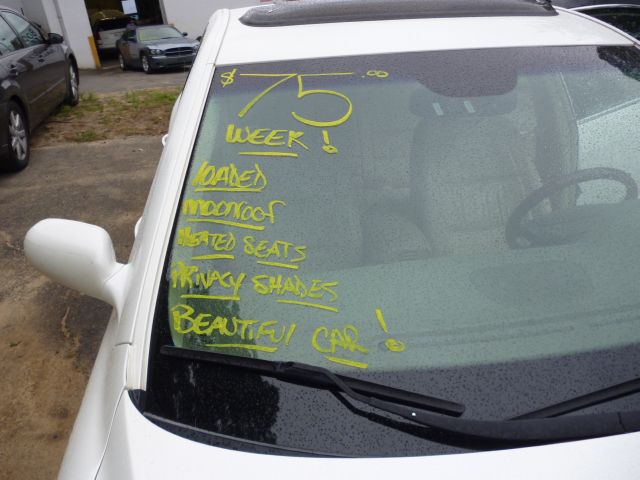 $75.00
WEEK!
LOADED
MOONROOF
HEATED SEATS
PRIVACY SHADES
BEAUTIFUL CAR!